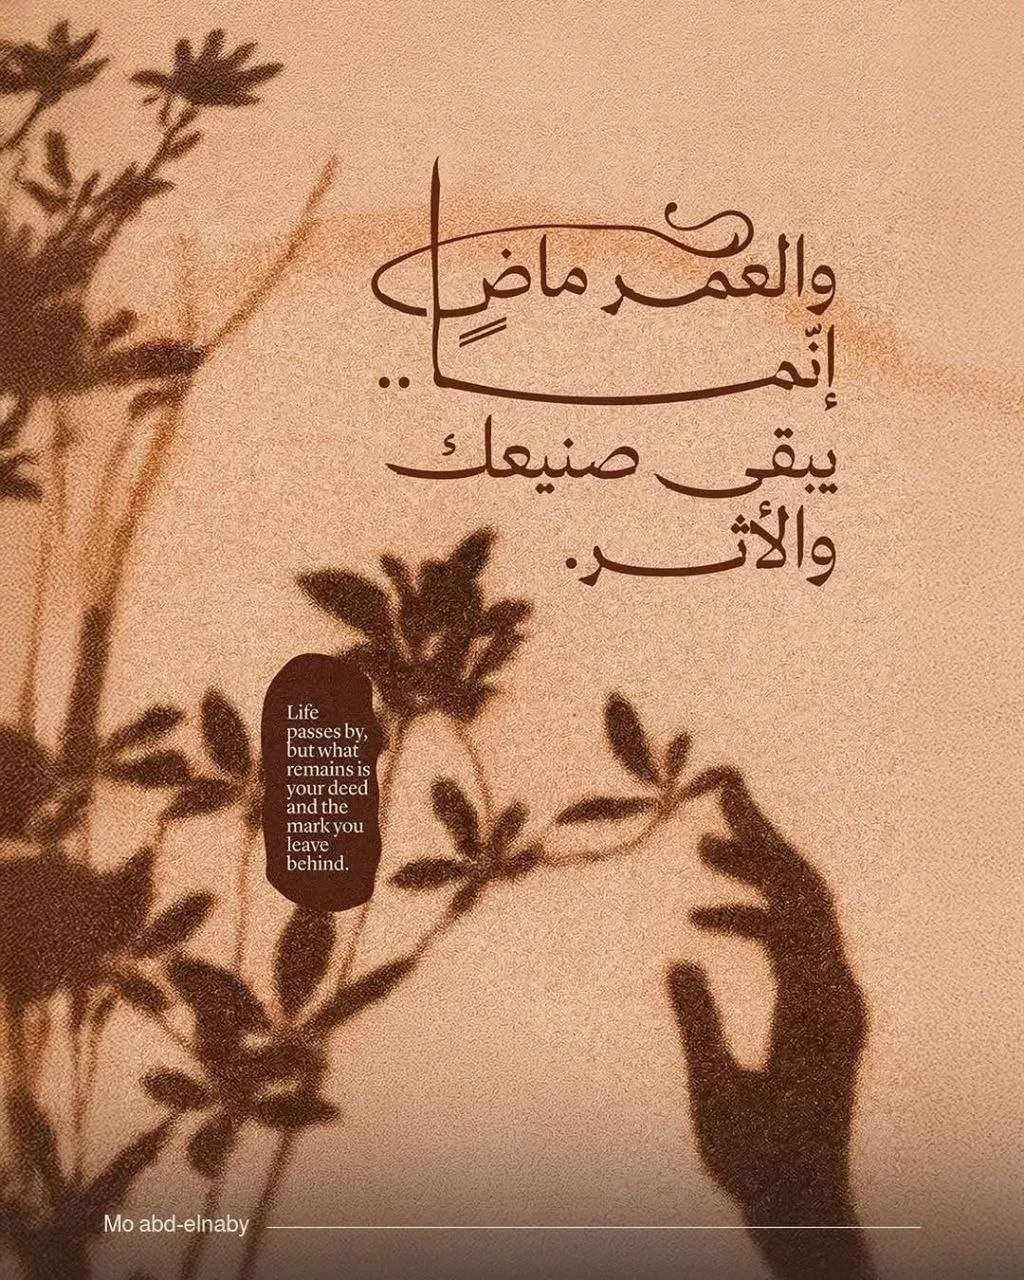 والعمر ماضٍ
إنّما..
يبقى صنيعك
والأثر.
Life
passes by,
but what
remains is
your deed
and the
mark you
leave
behind.
Mo abd-elnaby